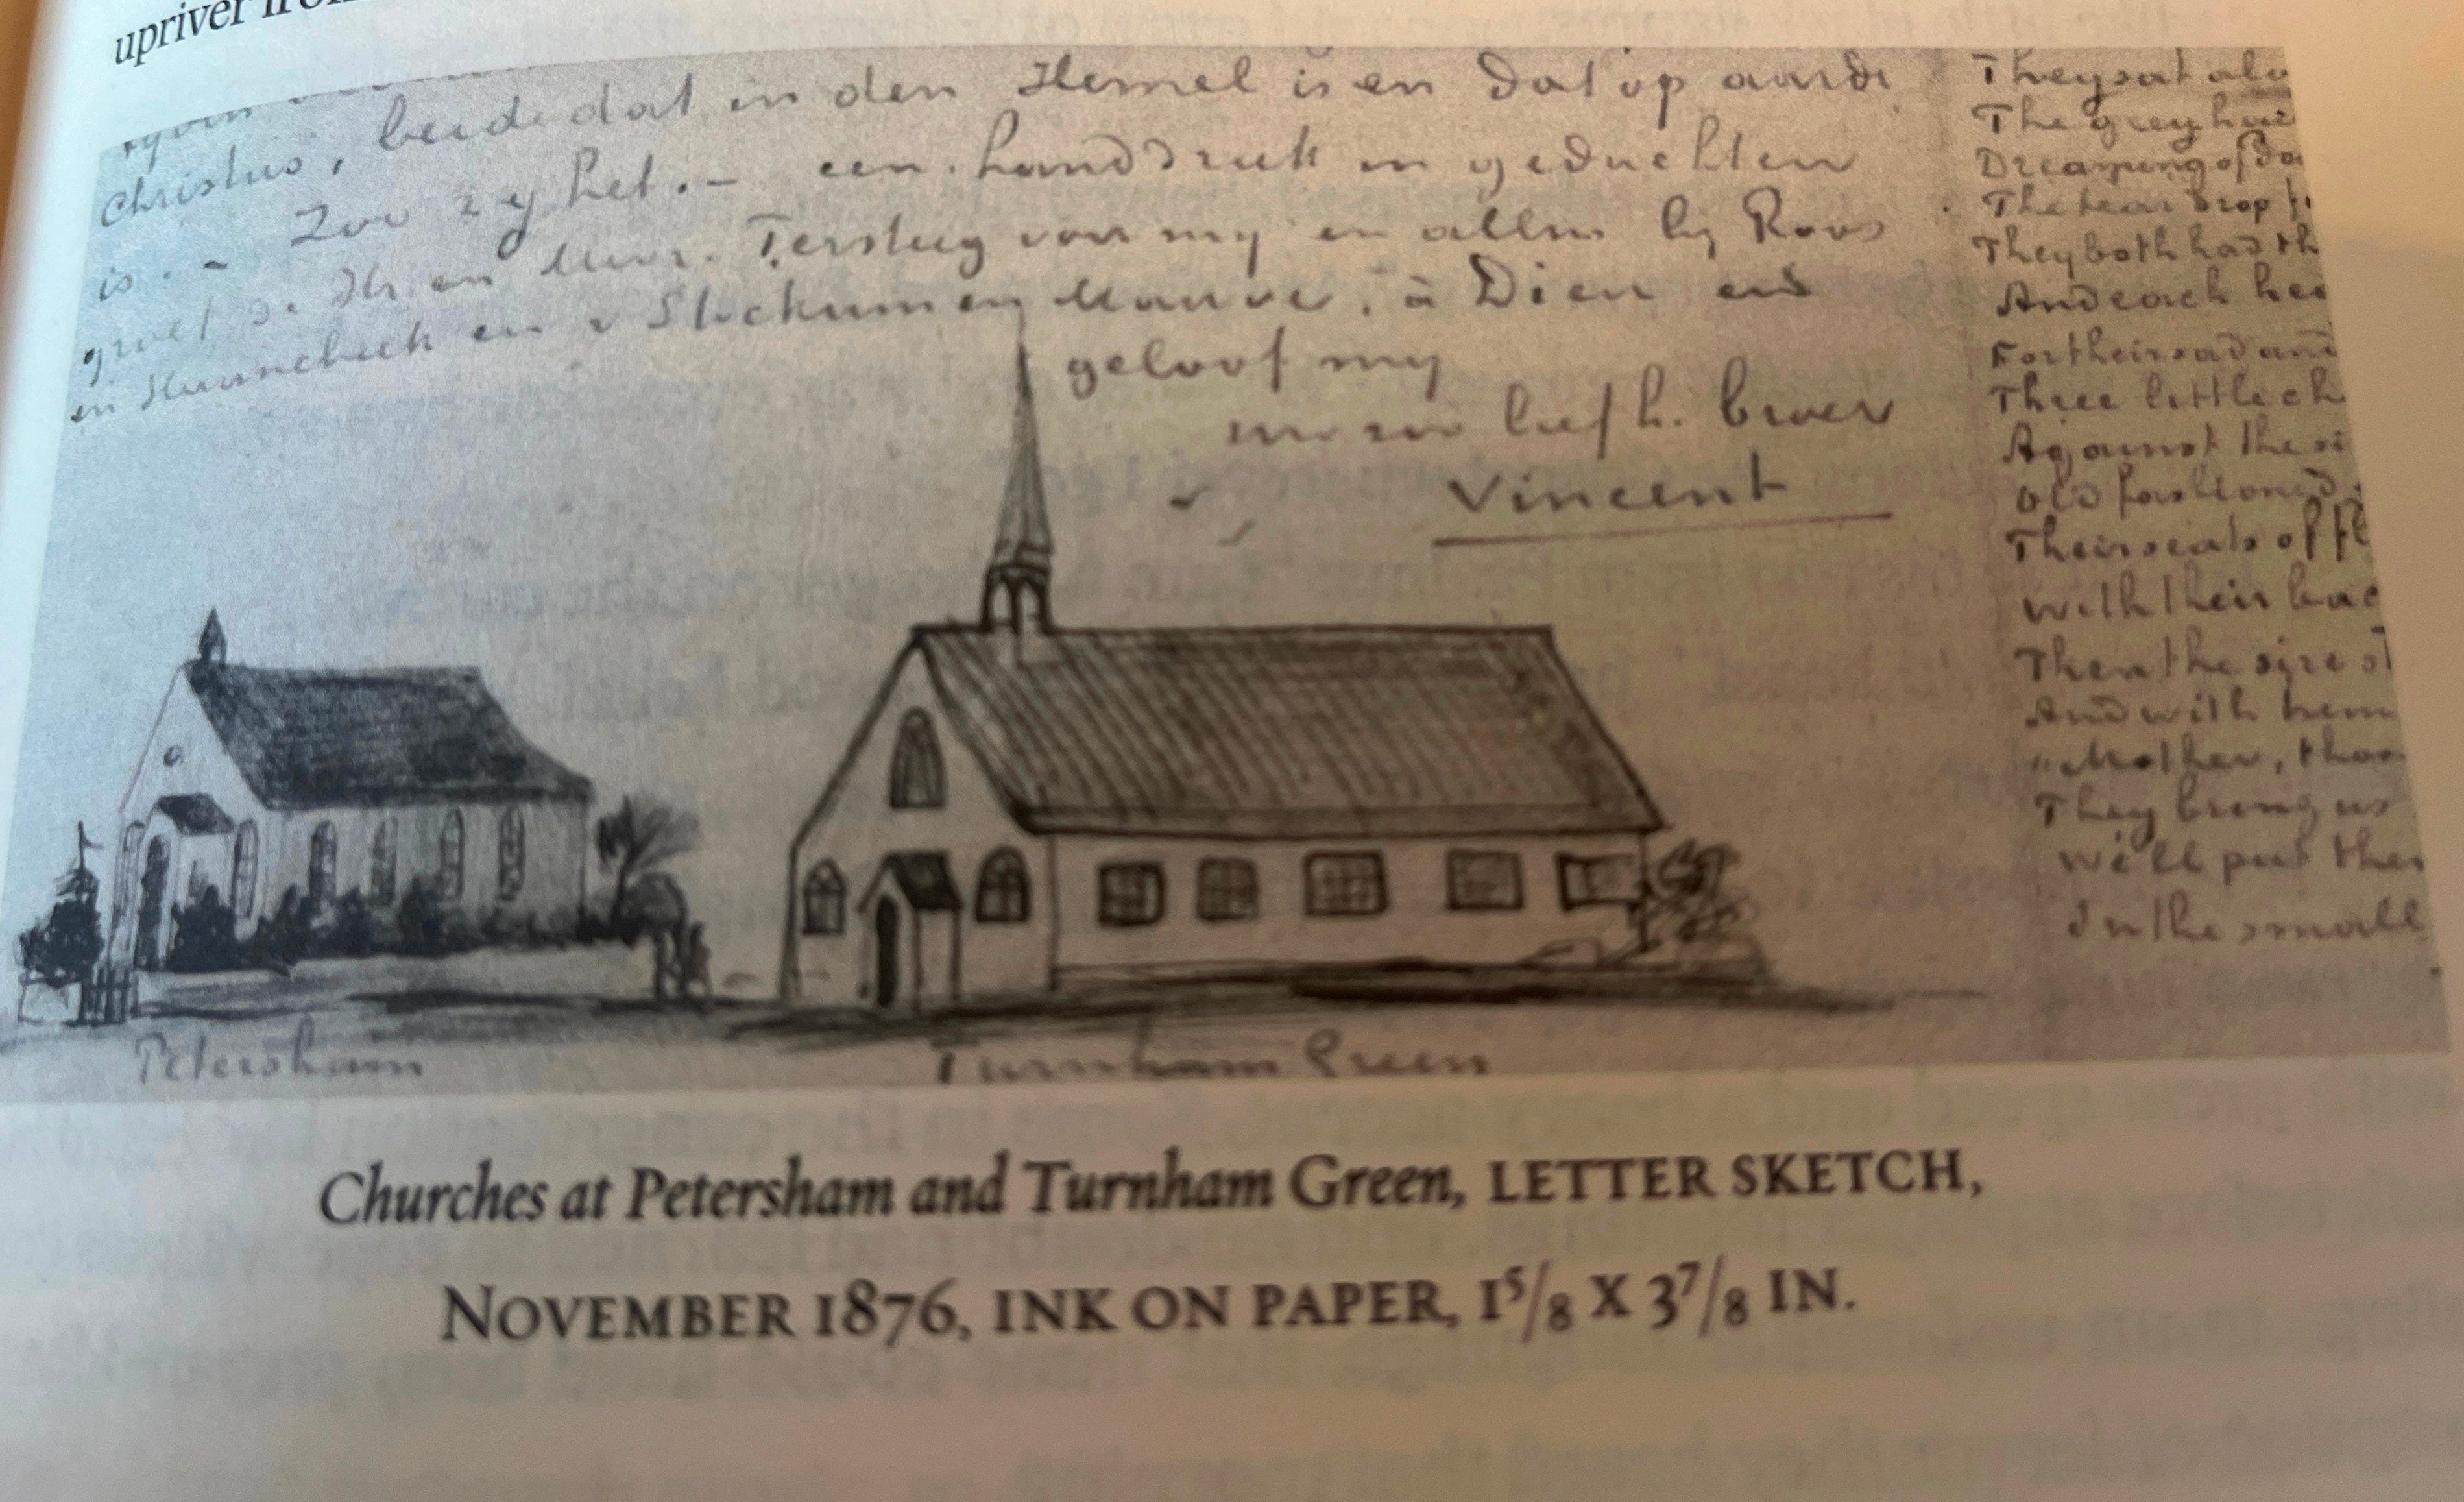 upriver
Christus, beide dat in den Hemel is en dat op aarde
is. - Zoo zy het. - een handdruk in gedachten
groet de Hr en Mevr. Tersteeg van my en allen by Roos
en Hunnebeek en v Stockum en Mauve, à Dieu en
geloof my
liefh. broer
Vincent
Petersham
Turnham Green
They sat
The grey
Dreaming of
The tear drop
They both had
And each
For their sad and
Three little
Against the
Old fashioned
Their seats of
With their
Then the sire
And with
"Mother,
They bring us
We'll put
In the small
Churches at Petersham and Turnham Green, LETTER SKETCH,
NOVEMBER 1876, INK ON PAPER, 1⁵/₈ X 3⁷/₈ IN.